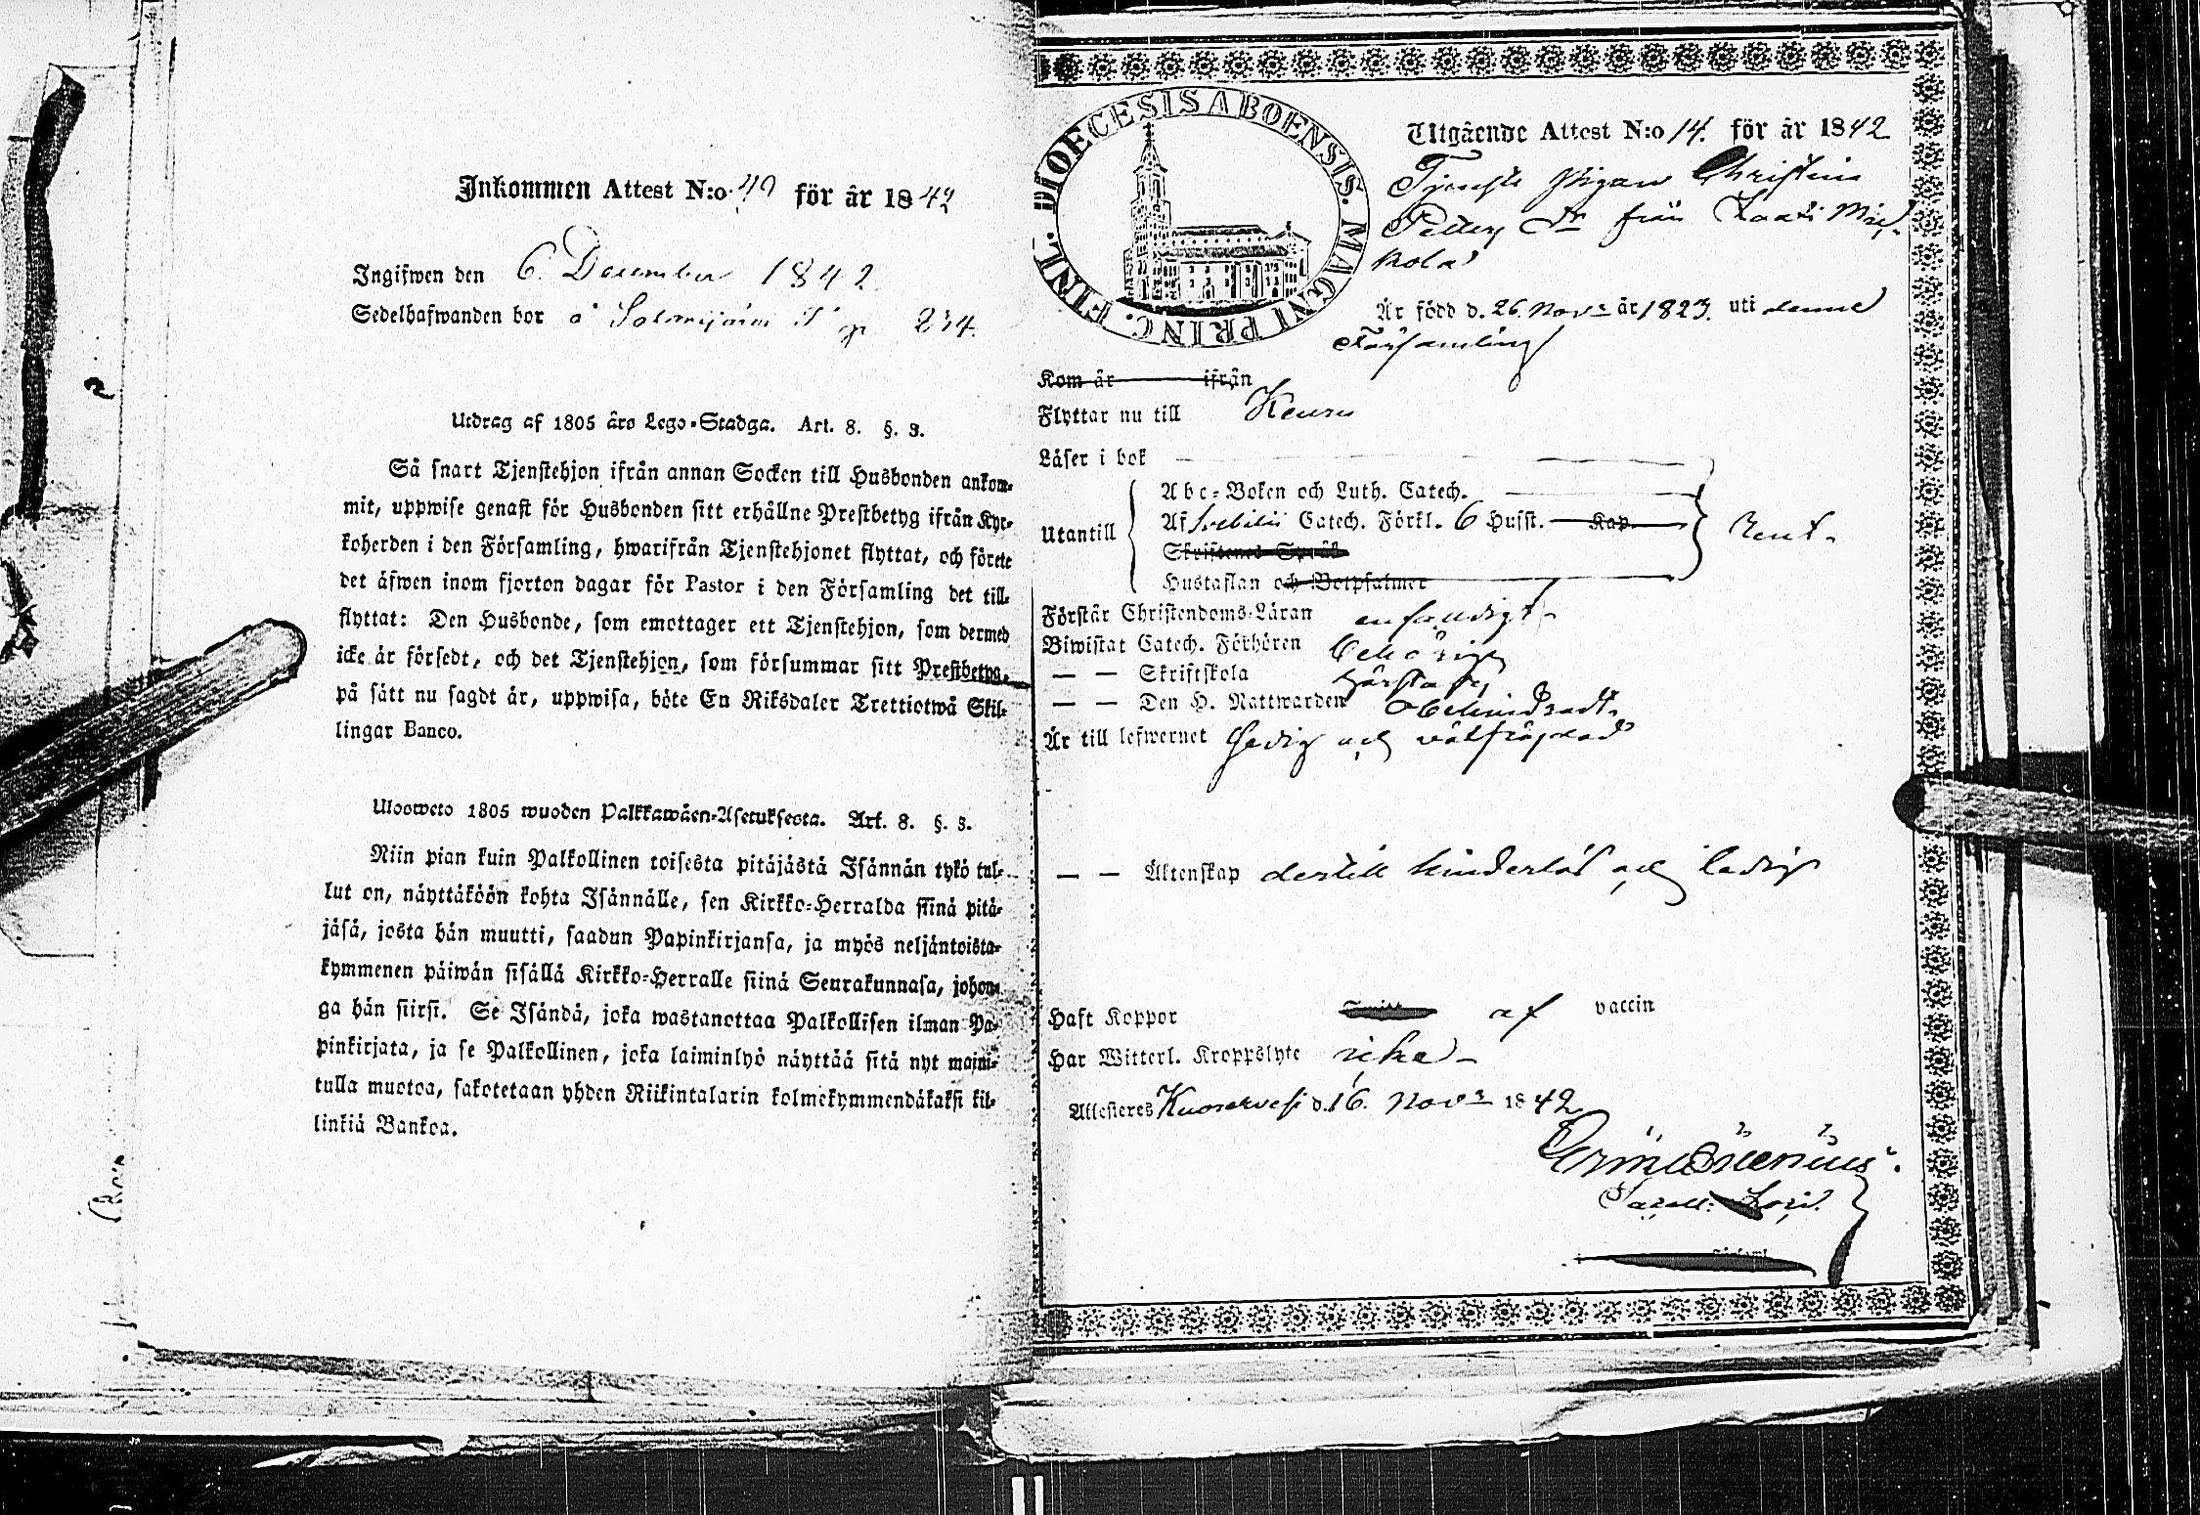 Inkommen Attest N:o 40 för år 1842
Ingifwen den 6 December 1842
Sedelhafwanden bor å p 234.
Utdrag af 1805 års Lego-Stadga. Art. 8. §. 3.
Så snart Tjenstehjon ifrån annan Socken till Husbonden ankom-
mit, uppwise genast för Husbonden sitt erhållne Prestbetyg ifrån Kyr-
koherden i den Församling, hwarifrån Tjenstehjonet flyttat, och förete
det äfwen inom fjorton dagar för Pastor i den Församling det till-
flyttat: Den Husbonde, som emottager ett Tjenstehjon, som dermed
icke är försedt, och det Tjenstehjon, som försummar sitt Prestbetyg,
på sätt nu sagdt är, uppwisa, böte En Riksdaler Trettiotwå Skil-
lingar Banco.
Ulosweto 1805 wuoden Palkkawäen-Asetuksesta. Art. 8. §. 3.
Niin pian kuin Palkollinen toisesta pitäjästä Isännän tykö tul-
lut on, näyttäköön kohta Isännälle, sen Kirkko-Herralda siinä pitä-
jäsä, josta hän muutti, saadun Papinkirjansa, ja myös neljäntoista-
kymmenen päiwän sisällä Kirkko-Herralle siinä Seurakunnasa, johon-
ga hän siirsi. Se Isändä, joka wastanottaa Palkollisen ilman Pa-
pinkirjata, ja se Palkollinen, joka laiminlyö näyttää sitä nyt maini-
tulla muotoa, sakotetaan yhden Riikintalarin kolmekymmendäkaksi kil-
linkiä Bankoa.
DIOECESIS ABOENSIS. MAGNI PRINC. FINL.
Utgående Attest N:o 14. för år 1842
Tjenste Pigan Christina
Petters Dr från
kola
Är född d. 26 Novr år 1823. uti denna
Församling
Kom år ifrån
Flyttar nu till Keuru
Läser i bok
Abc-Boken och Luth. Catech.
Utantill Af Svebilii Catech. Förkl. 6 Hufst. Kap. Rent.
Skriftenes Språk
Hustaflan och Botpsalmer
Förstår Christendoms-Läran enfaldigt
Biwistat Catech. Förhören behörigen
— — Skriftskola
— — Den H. Nattwarden obehindradt.
Är till lefwernet ledig och välfräjdad
— — Äktenskap dertill hinderlös och ledig
Haft Koppor af vaccin
Har Witterl. Kroppslyte icke
Attesteras Kuorevesi d. 16. Novr 1842